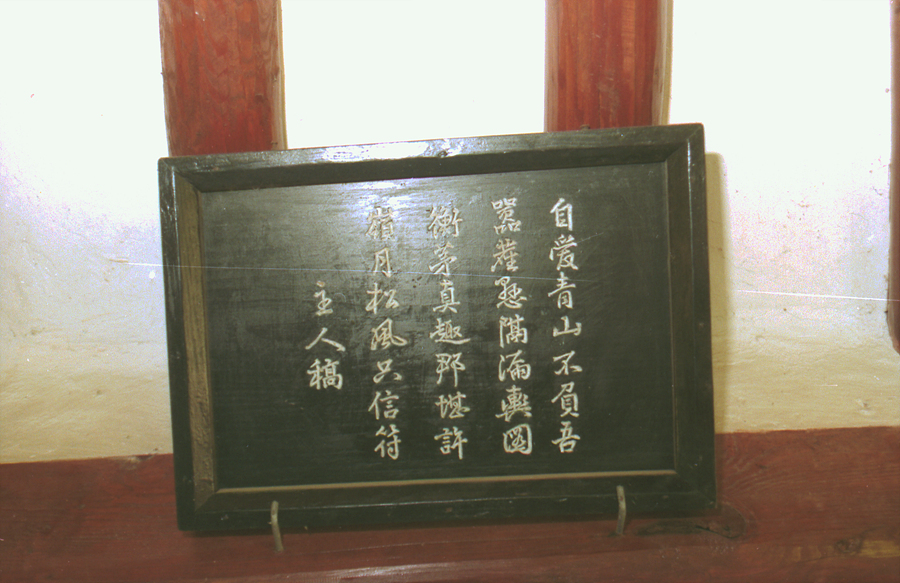 自愛青山不負吾
囂塵懸隔滿輿圖
衡茅真趣那堪許
嶺月松風只信符
主人稿